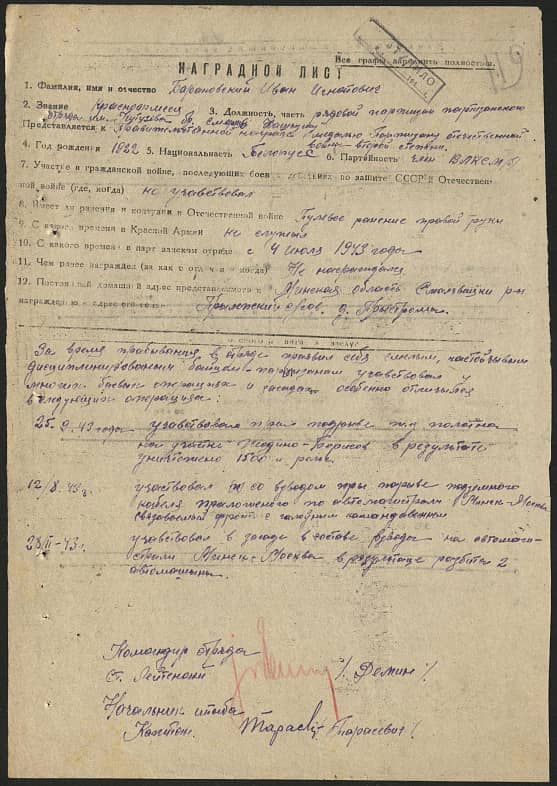 Все графы заполнять полностью.
19
НАГРАДНОЙ ЛИСТ
1. Фамилия, имя и отчество Барановский Иван Игнатович
2. Звание Красноармеец 3. Должность, часть рядовой партизан партизанского
отряда им.
Представляется к Правительственной награде медалью Партизану отечественной
войны второй степени.
4. Год рождения 1922 5. Национальность Белорус 6. Партийность член ВЛКСМ
7. Участие в гражданской войне, последующих боев. действиях по защите СССР и Отечествен-
ной войне (где, когда) не участвовал
8. Имеет ли ранения и контузии в Отечественной войне Пулевое ранение правой руки
9. С какого времени в Красной Армии не служил
10. С какого времени в партизанском отряде с 4 июля 1943 года
11. Чем ранее награжден (за какие отличия и когда) Не награждался
12. Постоянный домашний адрес представляемого к Минская область Смолевичский р-н
награждению и адрес его семьи
За время пребывания в отряде проявил себя смелым, настойчивым
дисциплинированным бойцом-партизаном участвовал в
многих боевых операциях и засадах особенно отличился
в следующих операциях:
25. 9.43 года участвовал при подрыве ж/д полотна
на участке Жодино-Борисов в результате
уничтожено 150 м. рельс
12/8.43г. участвовал со взводом при порыве подземного
кабеля проложенного по автомагистрали Минск-Москва
связываемой фронт с главным командованием
участвовал в засаде в составе взвода на автомаги-
страли Минск-Москва в результате разбита 2
автомашины
Командир отряда
Ст. Лейтенант / Демин /
Начальник штаба
Капитан Тарасевич